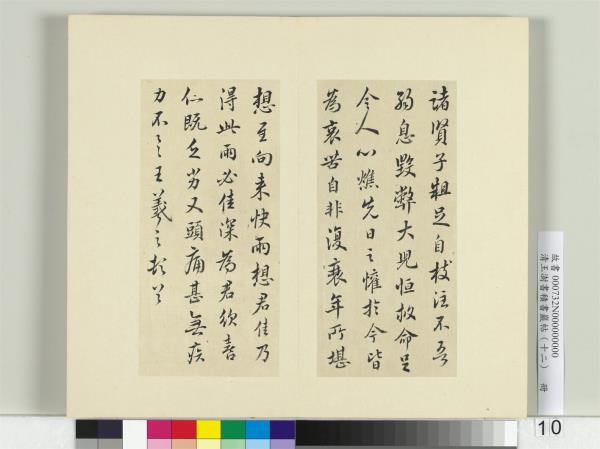 諸賢子粗足自枝注不吾
弱息毀弊大兒恒救命足
令人心燋先日之懽於今皆
為哀苦自非復衰年所堪
想至向来快雨想君佳乃
得此雨必佳深為君欣喜
仁既乏劣又頭痛甚無疾
力不一一王羲之頓首
故書 000732N000000000
清王澍書積書巖帖(十二) 冊
10